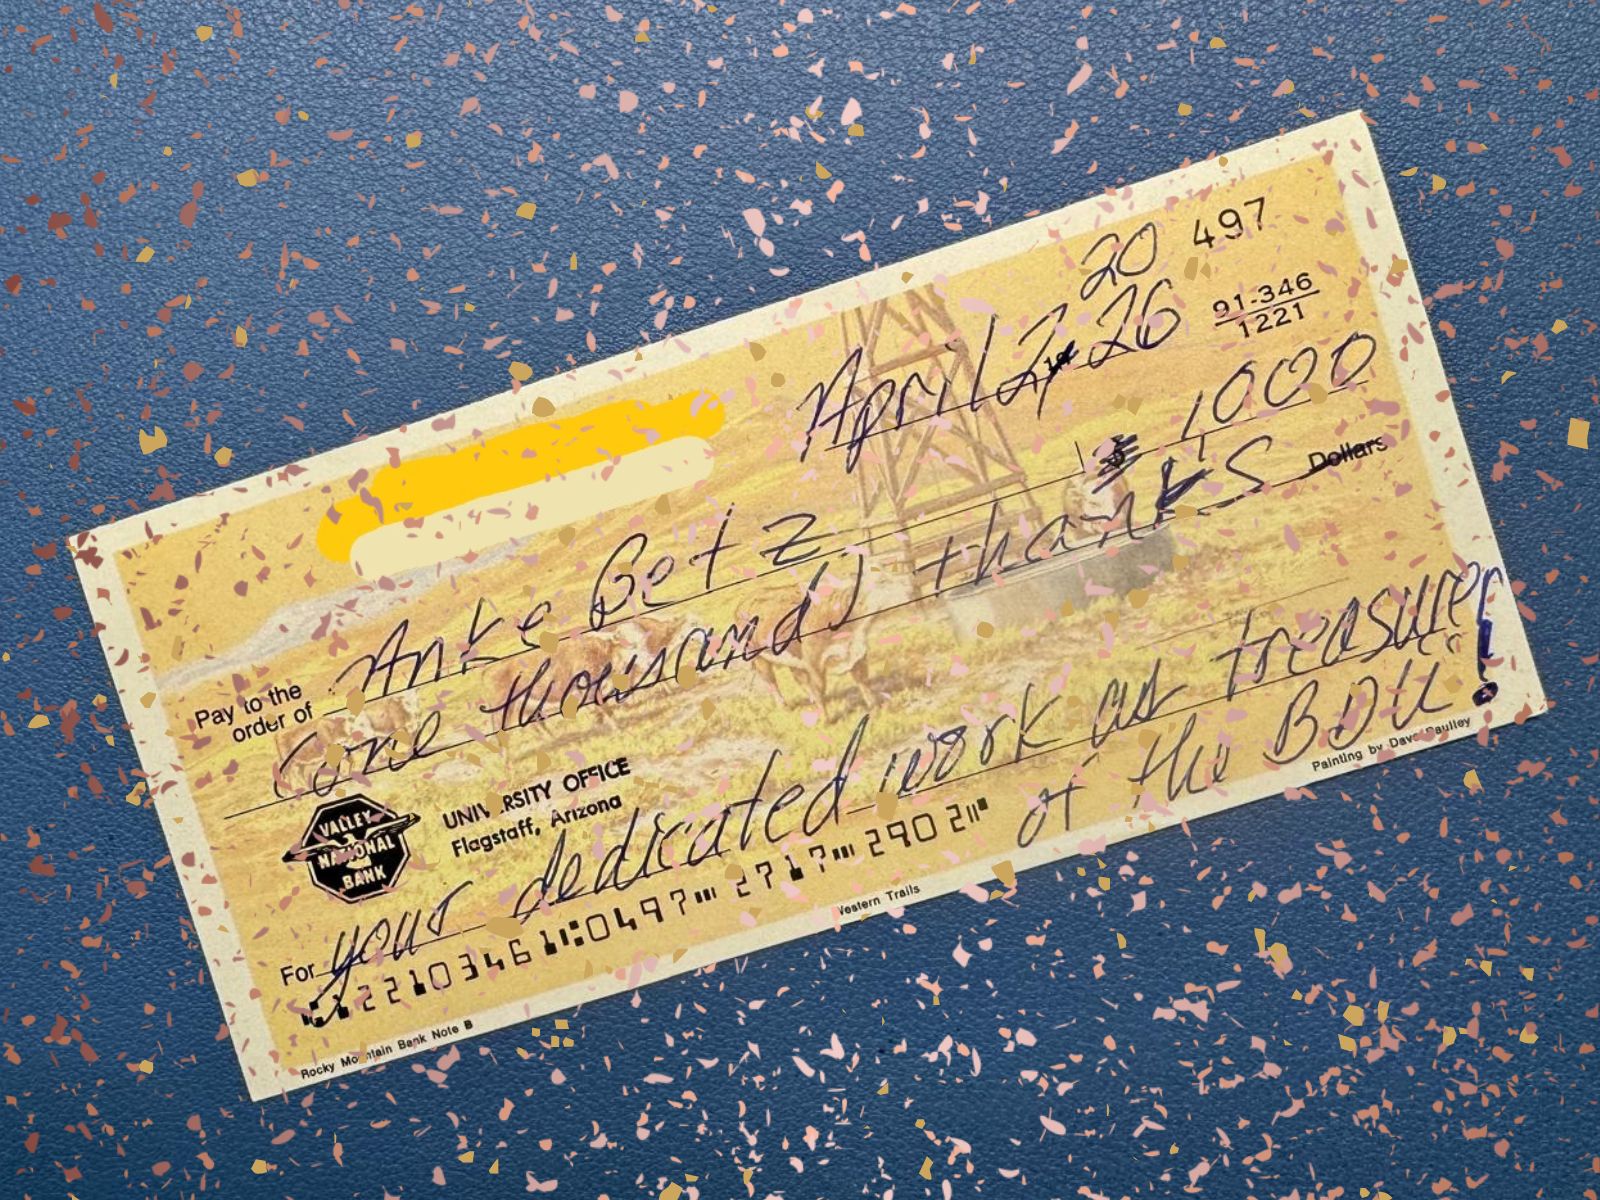 497
20
April 2, 26
91-346
1221
Pay to the
order of
Anke Betz
1000
one thousand) thanks Dollars
VALLEY
NATIONAL
BANK
UNIVERSITY OFFICE
Flagstaff, Arizona
For your dedicated work as treasurer!
of the BDU
12210346 0497 2717 290 2
Rocky Mountain Bank Note B
Western Trails
Painting by Dave Paulley